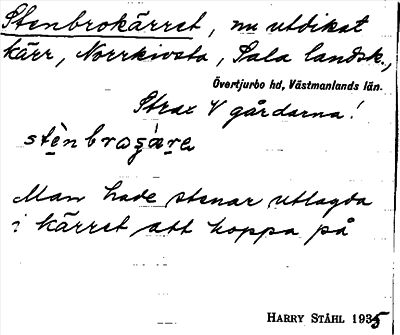 Stenbrokärret, nu utdikat
kärr, Norrkivsta, Sala landsk.,
Övertjurbo hd, Västmanlands län.
Strax V gårdarna!
Man hade stenar utlagda
i kärret att hoppa på
HARRY STÅHL 1935